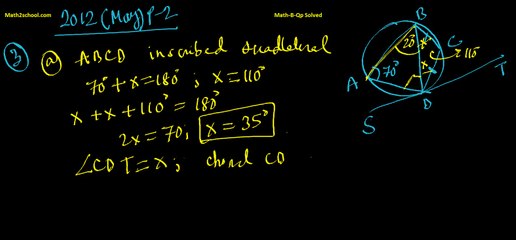 Math2school.com
Math-B-Qp Solved
2012 (May) P-2
③ ⓐ ABCD inscribed quadlateral
70° + x = 180° ; x = 110°
x + x + 110° = 180°
2x = 70 ; x = 35°
∠CDT = x ; chord CD
B
20°
x
C
= 110°
x
A
70°
T
D
S